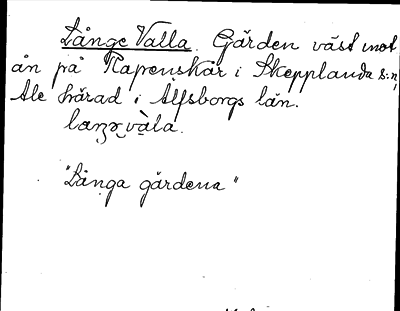 Långe Valla. Gärden väst mot
ån på Raprenskår i Skepplanda s:n,
Ale härad i Älfsborgs län.
"Långa gärdena"